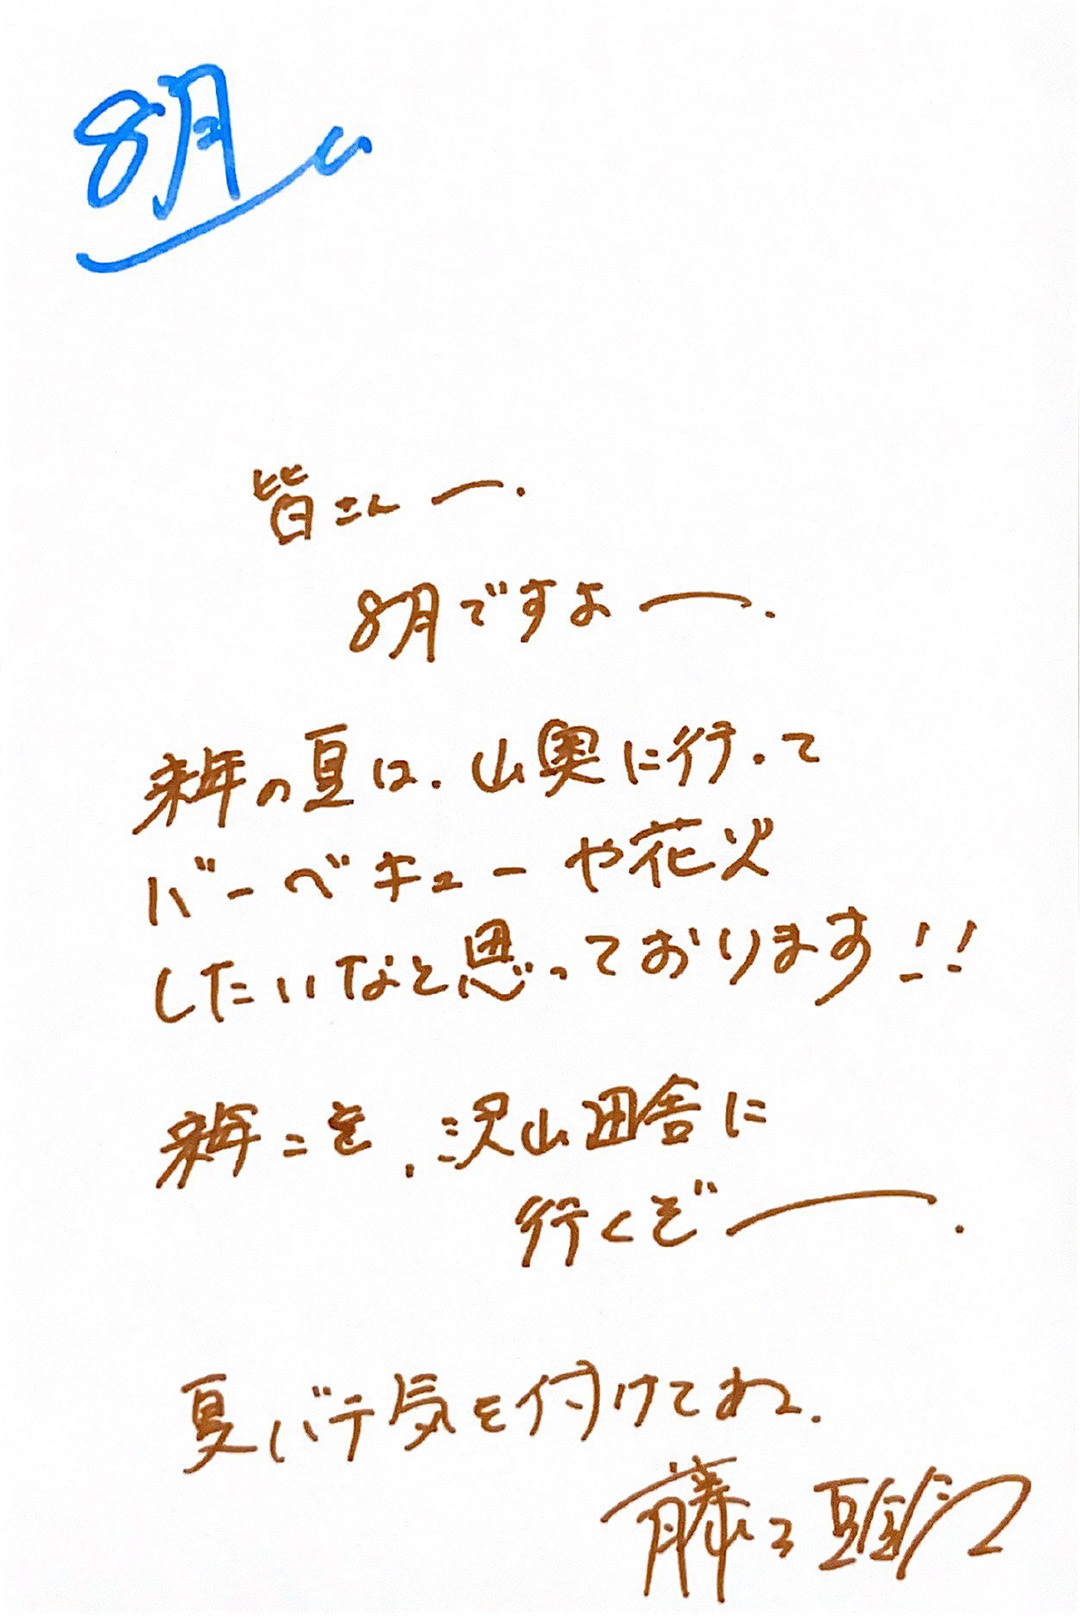 8月
皆さんー.
8月ですよー.
来年の夏は.山奥に行って
バーベキューや花火
したいなと思っております!!
来年こそ,沢山田舎に
行くぞー.
夏バテ気を付けてね.